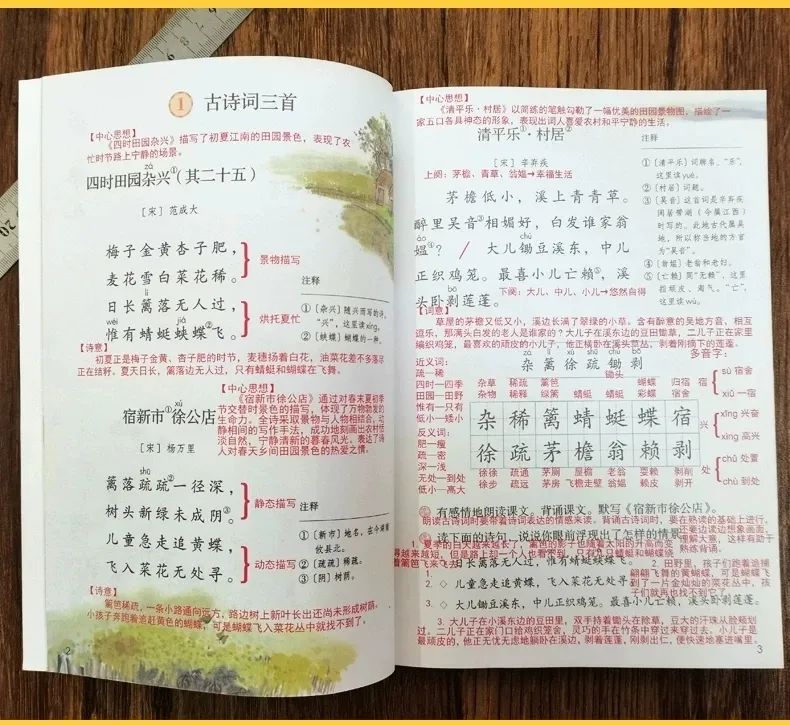 1 古诗词三首
【中心思想】
《四时田园杂兴》描写了初夏江南的田园景色，表现了农
忙时节路上宁静的场景。
zá
四时田园杂兴①（其二十五）
［宋］范成大
梅子金黄杏子肥，
麦花雪白菜花稀。
景物描写
lí
日长篱落无人过，
wéi jiá
惟有蜻蜓蛱蝶②飞。
烘托夏忙
注释
①〔杂兴〕随兴而写的诗。
“兴”，这里读xìng。
②〔蛱蝶〕蝴蝶的一种。
【诗意】
初夏正是梅子金黄、杏子肥的时节，麦穗扬着白花，油菜花差不多落尽
正在结籽。夏天日长，篱落边无人过，只有蜻蜓和蝴蝶在飞舞。
【中心思想】
《宿新市徐公店》通过对春末夏初季
节交替时景色的描写，体现了万物勃发的
生命力。全诗采取景物与人物相结合，动
静相间的写作手法，成功地刻画出农村恬
淡自然，宁静清新的暮春风光。表达了诗
人对春天乡间田园景色的热爱之情。
xú
宿新市①徐公店
［宋］杨万里
shū
篱落疏疏②一径深，
树头新绿未成阴③。
静态描写
儿童急走追黄蝶，
飞入菜花无处寻。
动态描写
注释
①〔新市〕地名，在今湖南
攸县北。
②〔疏疏〕稀疏。
③〔阴〕树荫。
【诗意】
篱笆稀疏，一条小路通向远方，路边树上新叶长出还尚未形成树荫。
小孩子奔跑着追赶黄色的蝴蝶，可是蝴蝶飞入菜花丛中就找不到了。
2
【中心思想】
《清平乐·村居》以简练的笔触勾勒了一幅优美的田园景物图，描绘了一
家五口各具神态的形象，表现出词人喜爱农村和平宁静的生活。
清平乐①·村居②
［宋］辛弃疾
上阕：茅檐、青草、翁媪→幸福生活
茅檐低小，溪上青青草。
醉里吴音③相媚好，白发谁家翁
ǎo chú
媪④？ 大儿锄豆溪东，中儿
正织鸡笼。最喜小儿亡赖⑤，溪
bāo
头卧剥莲蓬。
下阕：大儿、中儿、小儿→悠然自得
注释
①〔清平乐〕词牌名。“乐”，
这里读yuè。
②〔村居〕词题。
③〔吴音〕这首词是辛弃疾
闲居带湖（今属江西）
时写的。此地古代属吴
地，所以称当地的方言
为“吴音”。
④〔翁媪〕老翁和老妇。
⑤〔亡赖〕同“无赖”，这里
指顽皮、淘气。“亡”，
这里读wú。
【词意】
草屋的茅檐又低又小，溪边长满了翠绿的小草。含有醉意的吴地方音，相互
逗乐，那满头白发的老人是谁家的？大儿子在溪东边的豆田锄草，二儿子正在家里
编织鸡笼，最喜欢的顽皮的小儿子，他正横卧在溪头草丛，剥着刚摘下的莲蓬。
zá lí xú shū chú bāo
杂篱徐疏锄剥
近义词：
疏—稀
四时—四季
田园—田野
惟有—只有
低小—矮小
反义词：
肥—瘦
疏—密
深—浅
无处—到处
低小—高大
锄头
杂草 稀疏 篱笆 蝴蝶 归宿 宿舍
杂物 稀释 绿篱 蜻蜓 蜻蜓 彩蝶 宿舍
杂稀篱蜻蜓蝶宿
徐疏茅檐翁赖剥
徐徐 疏通 茅厕 屋檐 老翁 耍赖 剥削
徐步 疏远 茅房 飞檐走壁 翁媪 无赖 剥开
多音字：
宿
sù 宿舍
xiǔ 一宿
兴
xīng 兴奋
xìng 高兴
处
chǔ 处置
chù 到处
有感情地朗读课文。背诵课文。默写《宿新市徐公店》。
朗读古诗词时要带着诗词表达的情感来读。背诵古诗词时，要在熟读的基础上进行，
还要边读边想象画面，
理解大意，这样有助于
熟练背诵。
读下面的诗句，说说你眼前浮现出了怎样的情景。
日长篱落无人过，惟有蜻蜓蛱蝶飞。
2. 田野里，孩子们跑着追捕
翩翩飞舞的黄蝴蝶，可是蝴蝶飞
到了一片金灿灿的菜花丛中，孩
子们就再也找不到它了。
◇ 儿童急走追黄蝶，飞入菜花无处寻。
◇ 大儿锄豆溪东，中儿正织鸡笼。最喜小儿亡赖，溪头卧剥莲蓬。
3. 大儿子在小溪东边的豆田里，双手持着锄头在除草，豆大的汗珠从脸颊划
过。二儿子正在家门口给鸡织笼舍，灵巧的手在竹条中穿过来穿过去。小儿子是
最顽皮的，他正无忧无虑地躺在小溪边，剥着莲蓬，刚剥出仁，便快速地塞进嘴里。
3